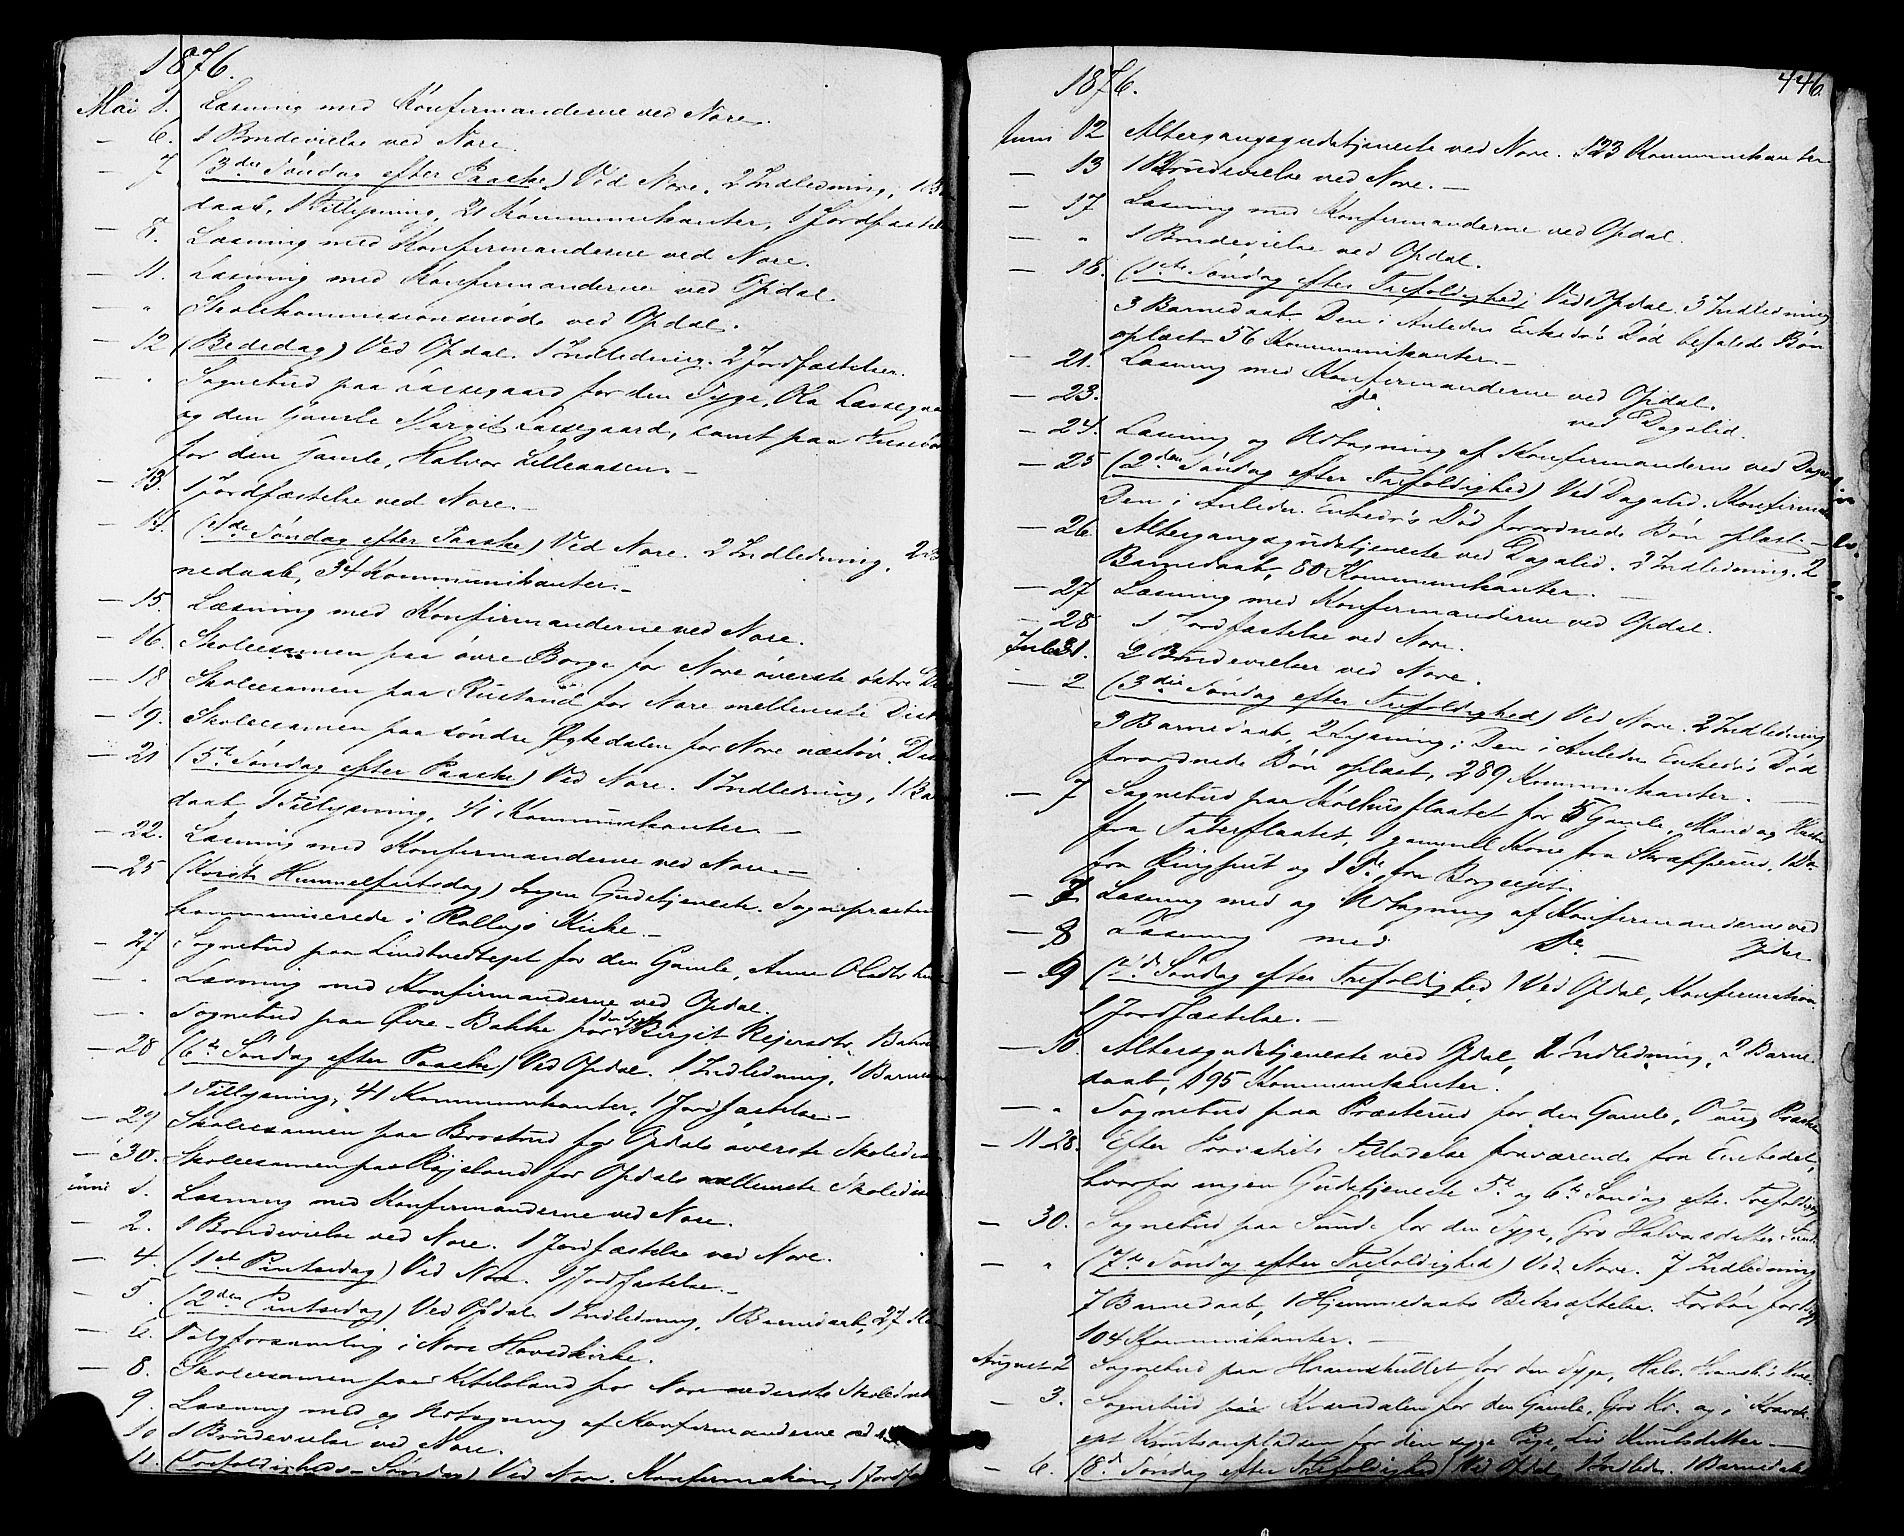 1876.
Mai 1. Læsning med Konfirmanderne ved Nore.
— 6. 1 Brudevielse ved Nore.
— 7 (3die Søndag efter Paaske) Ved Nore. 2 Indledning, 1
daab, 1 Tillysning, 21 Kommunikanter, 1 Jordfæstelse
— 8. Læsning med Konfirmanderne ved Nore.
— 11. Læsning med Konfirmanderne ved Opdal.
— " Skolekommissionsmøde ved Opdal.
— 12 (Bededag) Ved Opdal. 1 Indledning. 2 Jordfæstelser.
— " Sognebud paa Lassegaard for den Syge, Ola Lassegaa
og den gamle Margit Lassegaard, samt paa
for den gamle, Halvor Lilleaasen.—
— 13. 1 Jordfæstelse ved Nore.—
— 14. (4de Søndag efter Paaske) Ved Nore. 2 Indledning. 2
nedaab, 34 Kommunikanter.—
— 15. Læsning med Konfirmanderne ved Nore.
— 16. Skoleexamen paa øvre Borge for Nore øverste østre
— 18 Skoleexamen paa Rustand for Nore mellemste Dist
— 19. Skoleexamen paa søndre Øygedalen for Nore Dis
— 21 (5te Søndag efter Paaske) Ved Nore. 1 Indledning, 1 Ba
daab 1 Tillysning, 41 Kommunikanter —
— 22. Læsning med Konfirmanderne ved Nore.—
— 25 (Kristi Himmelfartsdag) Ingen Gudstjeneste. Sognepræsten
kommunicerede i Rollags Kirke.—
— 27 Sognebud paa Lindtvedteget for den Gamle, Anne Olsdtr
— " Læsning med Konfirmanderne ved Opdal.
— " Sognebud paa Øvre-Bakke for den syge Birgit Rejersdtr. Bak
— 28 (6te Søndag efter Paaske) Ved Opdal. 1 Indledning, 1 Barne
1 Tillysning, 41 Kommunikanter, 1 Jordfæstelse—
— 29 Skoleexamen paa Brostrud for Opdals øverste Skoledis
— 30. Skoleexamen paa Røjsland for Opdals mellemste Skoledis
uni 1. Læsning med Konfirmanderne ved Nore.
— 2. 1 Brudevielse ved Nore. 1 Jordfæstelse ved Nore.
— 4. (1ste Pintsedag) Ved Nore. 1 Jordfæstelse.—
— 5. (2den Pintsedag) Ved Opdal 1 Indledning, 1 Barnedaab, 27 Ko
— 6. Valgforsamling i Nore Hovedkirke.
— 8. Skoleexamen paa Kittilsland for Nore nederste Skoledist
9. Læsning med og Udtagning af Konfirmanderne ved
10 1 Brudevielse ved Nore.
11. (Trefoldigheds-Søndag) Ved Nore. Konfirmation, 1 Jordf
1876.
446
Juni 12 Altergangsgudstjeneste ved Nore. 123 Kommunikanter
— 13 1 Brudevielse ved Nore.—
— 17 Læsning med Konfirmanderne ved Opdal.
— " 1 Brudevielse ved Opdal.
— 18. (1ste Søndag efter Trefoldighed) Ved Opdal. 3 Indledning
3 Barnedaab. Den i Anledn. Enkedr's Død befalede Bøn
oplæst. 56 Kommunikanter—
— 21. Læsning med Konfirmanderne ved Opdal.
— 23. Do ved Dagalid.
— 24. Læsning og Udtagning af Konfirmanderne ved Daga
— 25 (2den Søndag efter Trefoldighed) Ved Dagalid. Konfirma
Den i Anledn. Enkedr's Død forordnede Bøn oplæst.—
— 26. Altergangsgudstjeneste ved Dagalid. 2 Indledning. 2
Barnedaab, 80 Kommunikanter.—
— 27 Læsning med Konfirmanderne ved Opdal.
— 28 1 Jordfæstelse ved Nore.
Juli 1. 2 Brudevielser ved Nore.
— 2 (3die Søndag efter Trefoldighed) Ved Nore. 2 Indledning
3 Barnedaab, 2 Lysning; Den i Anledn Enkedr's Død
forordnede Bøn oplæst, 289 Kommunikanter.—
— 7 Sognebud paa Kølhusflaatet for 5 Gamle, Mand og Kone
fra Taterflaatet, 1 gammel Kone fra Skrapperud, 1 Do
fra Ringhuit og 1 Do fra Borgeejet.
— 7. Læsning med og Udtagning af Konfirmanderne ved
— 8 Læsning med Do — Opdal
— 9 (4de Søndag efter Trefoldighed) Ved Opdal, Konfirmation
1 Jordfæstelse.—
— 10. Altergudstjeneste ved Opdal, 2 Indledning, 2 Barne-
daab, 195 Kommunikanter.
— " Sognebud paa Præsterud for den Gamle,
— 11-28. Efter Provstiets Tilladelse fraværende fra Embedet,
hvorfor ingen Gudstjeneste 5te og 6te Søndag eft. Trefoldigh
— 30. Sognebud paa Sunde for den Syge, Gro Halvorsdatter
— " (7de Søndag efter Trefoldighed) Ved Nore. 7 Indledning
7 Barnedaab, 1 Hjemmedaabs Bekræftelse. Forbøn for
104 Kommunikanter.—
August 2 Sognebud paa for den Syge, Halv.
— 3. Sognebud paa Kvændalen for den Gamle, Gro Kr. og i
ejet Knutsenpladsen for den syge Pige, Liv Knutsdatter.—
— 6. (8de Søndag efter Trefoldighed) Ved Opdal, 1 Indledn. 1 Barnedaab